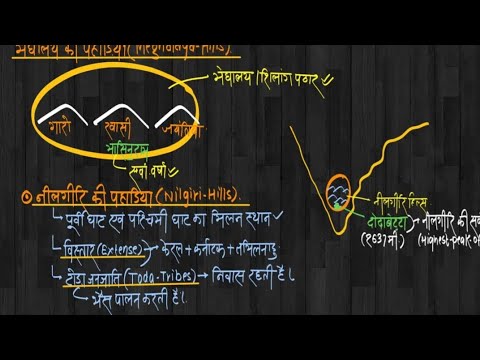 मेघालय की पहाड़ियाँ
मेघालय/शिलांग पठार
गारो खासी जयंतिया
मासिनराम
सर्वा वर्षा
नीलगीरि की पहाड़िया (Nilgiri-Hills).
पूर्वी घाट एवं पश्चिमी घाट का मिलन स्थान
विस्तार (Extense) → केरल + कर्नाटक + तमिलनाडु
टोडा जनजाति (Toda-Tribes) → निवास रहती है।
भैंस पालन करती है।
नीलगीरि हिल्स
दोदाबेटटा → नीलगीरि की सब
(2637मी.) (Highest-peak-of